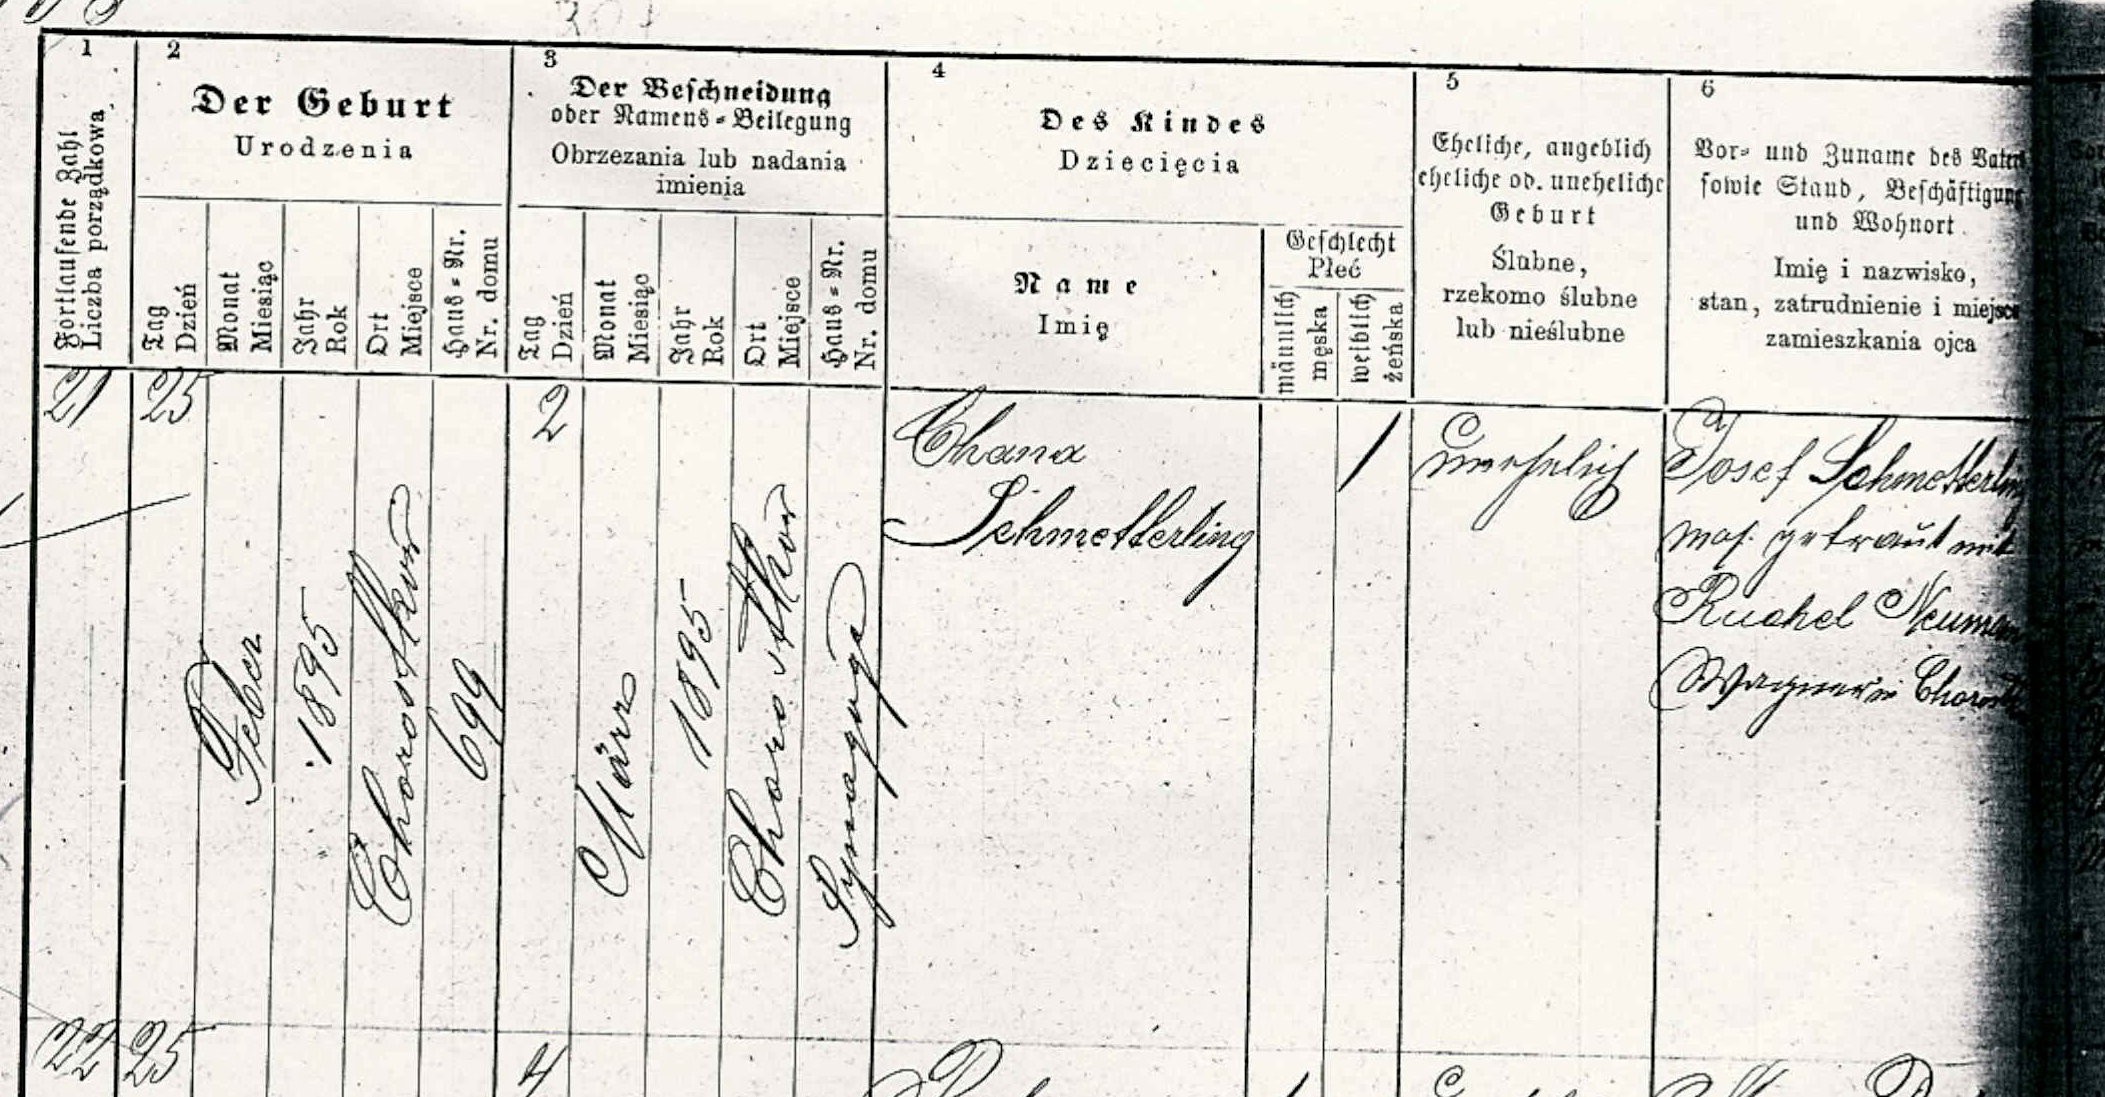 1
2
3
4
5
6
Fortlaufende Zahl
Liczba porządkowa
Der Geburt
Urodzenia
Tag
Dzień
Monat
Miesiąc
Jahr
Rok
Ort
Miejsce
Haus-Nr.
Nr. domu
Der Beschneidung
oder Namens-Beilegung
Obrzezania lub nadania
imienia
Tag
Dzień
Monat
Miesiąc
Jahr
Rok
Ort
Miejsce
Haus-Nr.
Nr. domu
Des Kindes
Dziecięcia
Name
Imię
Geschlecht
Płeć
männlich
męska
weiblich
żeńska
Eheliche, angeblich
eheliche od. uneheliche
Geburt
Ślubne,
rzekomo ślubne
lub nieślubne
Vor- und Zuname des Vaters
sowie Stand, Beschäftigung
und Wohnort
Imię i nazwisko,
stan, zatrudnienie i miejsce
zamieszkania ojca
21
25
Feber
1895
Chorostkow
699
2
März
1895
Chorostkow
Synagoga
Chana
Schmetterling
1
unehelich
Josef Schmetterling
mos. getraut mit
Ruchel
Wagner in
22
25
4